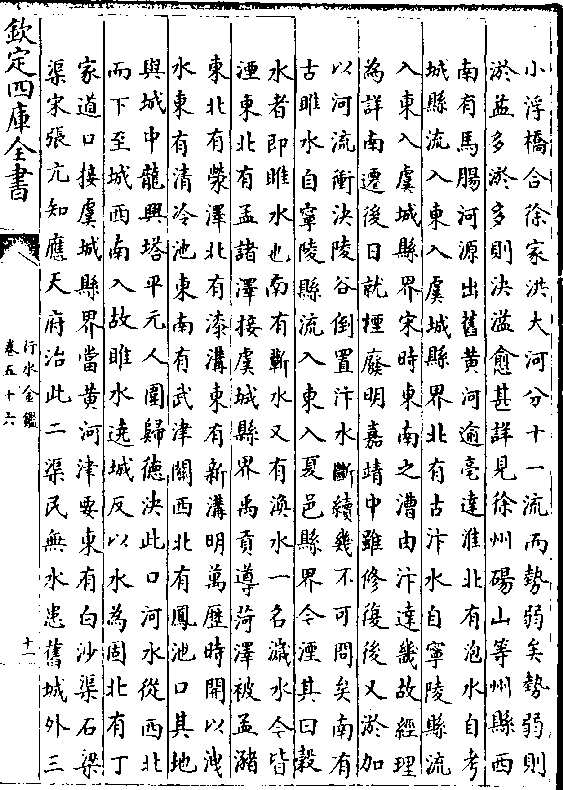 小浮橋合徐家洪大河分十一流而勢弱矣勢弱則
淤益多淤多則決溢愈甚詳見徐州碭山等州縣西
南有馬腸河源出舊黄河逾亳達淮北有泡水自考
城縣流入東入虞城縣界北有古汴水自寧陵縣流
入東入虞城縣界宋時東南之漕由汴達畿故經理
為詳南遷後日就堙廢明嘉靖中雖修復後又淤加
以河流衝決陵谷倒置汴水斷續幾不可問矣南有
古睢水自寧陵縣流入東入夏邑縣界今湮其曰穀
水者即睢水也南有蘄水又有渙水一名濊水今皆
湮東北有孟諸澤接虞城縣界禹貢導菏澤被孟瀦
東北有蒙澤北有漆溝東有新溝明萬歷時開以洩
水東有清泠池東南有武津關西北有鳳池口其地
與城中龍興塔平元人圍歸德決此口河水從西北
而下至城西南入故睢水遶城反以水為固北有丁
家道口接虞城縣界當黄河津要東有白沙渠石梁
渠宋張亢知應天府治此二渠民無水患舊城外三
欽定四庫全書
行水金鑑
卷五十六
十一